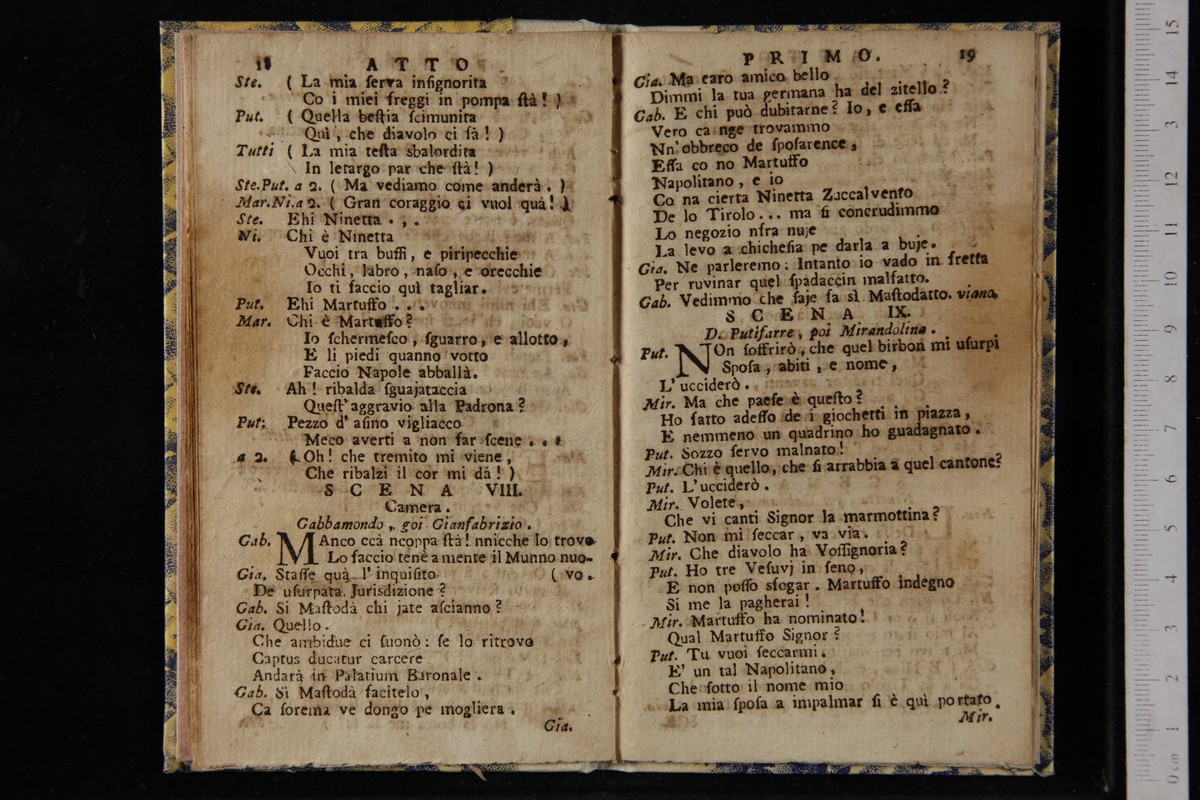 18 ATTO
Ste. ( La mia ſerva inſignorita
Co i miei freggi in pompa ſtà! )
Put. ( Quella beſtia ſcimunita
Quì, che diavolo ci fà! )
Tutti ( La mia teſta sbalordita
In letargo par che ſtà! )
Ste.Put. a 2. ( Ma vediamo come anderà. )
Mar.Ni.a 2. ( Gran coraggio ci vuol quà! )
Ste. Ehi Ninetta . , .
Ni. Chi è Ninetta
Vuoi tra buffi, e piripecchie
Occhi, labro, naſo, e orecchie
Io ti faccio quì tagliar.
Put. Ehi Martuffo . . .
Mar. Chi è Martuffo?
Io ſchermeſco, ſguarro, e allotto,
E li piedi quanno votto
Faccio Napole abballà.
Ste. Ah! ribalda ſguajataccia
Queſt' aggravio alla Padrona?
Put. Pezzo d' aſino vigliacco
Meco averti a non far ſcene . . .
a 2. ( Oh! che tremito mi viene,
Che ribalzi il cor mi dà! )
SCENA VIII.
Camera.
Gabbamondo, poi Gianfabrizio.
Gab. MAnco ccà ncoppa ſtà! nnicche lo trovo
Lo faccio tenè a mente il Munno nuo-
Gia. Staffe quà l' inquiſito ( vo.
De uſurpata Jurisdizione?
Gab. Si Maſtodà chi jate aſcianno?
Gia. Quello.
Che ambidue ci ſuonò: ſe lo ritrovo
Captus ducatur carcere
Andarà in Palatium Baronale.
Gab. Sì Maſtodà facitelo,
Ca ſorema ve dongo pe mogliera.
Gia.
PRIMO. 19
Gia. Ma caro amico bello
Dimmi la tua germana ha del zitello?
Gab. E chi può dubitarne? Io, e eſſa
Vero ca nge trovammo
Nn' obbreco de ſpoſarence,
Eſſa co no Martuffo
Napolitano, e io
Co na cierta Ninetta Zuccalvento
De lo Tirolo... ma ſi concrudimmo
Lo negozio nfra nuje
La levo a chicheſia pe darla a buje.
Gia. Ne parleremo: Intanto io vado in fretta
Per ruvinar quel ſpadaccin malfatto.
Gab. Vedimmo che ſaje fa sì Maſtodatto. viano.
SCENA IX.
D. Putifarre, poi Mirandolina.
Put. NOn ſoffrirò, che quel birbon mi uſurpi
Spoſa, abiti, e nome,
L' ucciderò.
Mir. Ma che paeſe è queſto?
Ho fatto adeſſo de i giochetti in piazza,
E nemmeno un quadrino ho guadagnato.
Put. Sozzo ſervo malnato!
Mir. Chi è quello, che ſi arrabbia a quel cantone?
Put. L' ucciderò.
Mir. Volete,
Che vi canti Signor la marmottina?
Put. Non mi ſeccar, va via.
Mir. Che diavolo ha Voſſignoria?
Put. Ho tre Veſuvj in ſeno,
E non poſſo sfogar. Martuffo indegno
Si me la pagherai!
Mir. Martuffo ha nominato!
Qual Martuffo Signor?
Put. Tu vuoi ſeccarmi.
E' un tal Napolitano,
Che ſotto il nome mio
La mia ſpoſa a impalmar ſi è quì portato.
Mir.